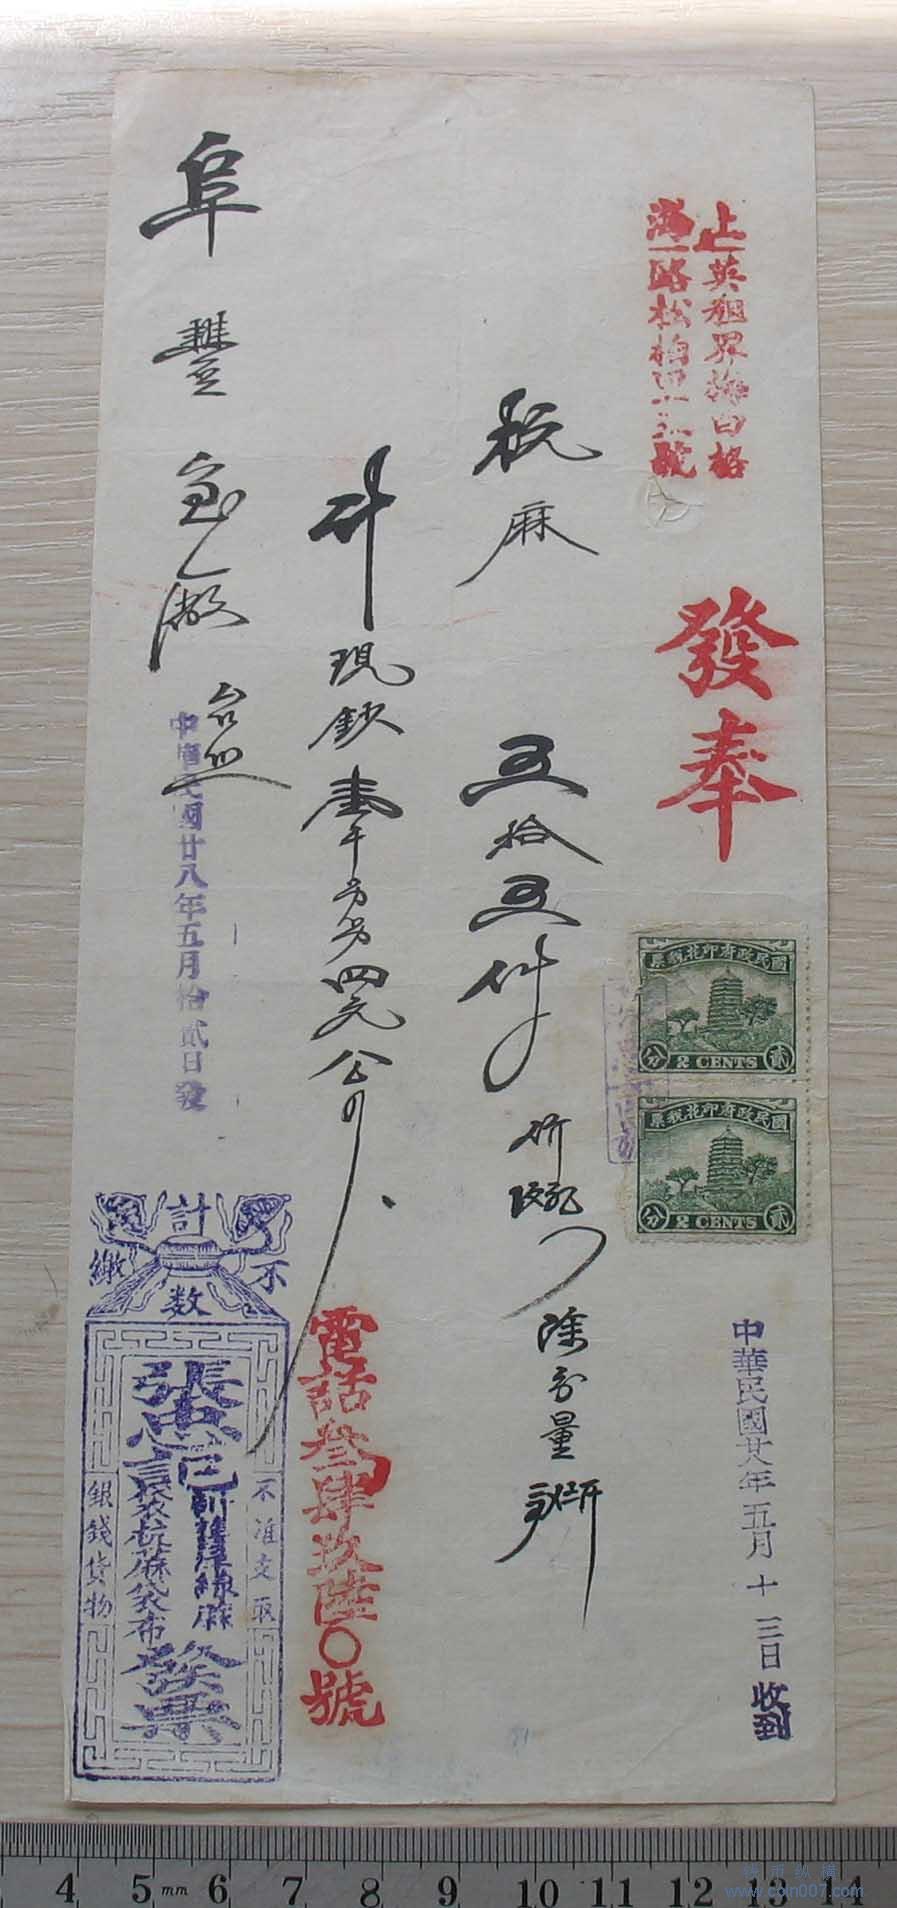 上英租界梅白格
海路松柏里
號
發奉
國民政府印花稅票
貳 2 CENTS 分
國民政府印花稅票
貳 2 CENTS 分
中華民國廿八年五月十三日收到
麻 五拾五件
除 量
計現鈔壹千 四元
電話叁肆玖陸〇號
阜豐
台照
中華民國廿八年五月拾貳日發
計數不繳
張忠記
綠麻
袋 麻袋布
發票
不准支取
銀錢貨物
4 5 mm 6 7 8 9 10 11 12 13 14
钱币纵横
www.coin007.com